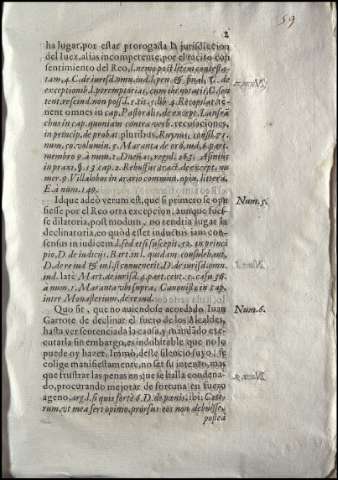 2
59
ha lugar, por estar prorogada la jurisdiccion
del Juez, aliàs incompetente, por el tacito con
sentimiento del Reo, l. nemo post litem contesta-
tam, 4. C. de jurisd. omn. iud. l. pen. & final, C. de
exceptionib. l. peremptorias, cum ibi notatis, C. sen
tent. rescind. non poss. l.
ment omnes in cap. Pastoralis, de except.
chus in cap. quoniam contra verb. recusationes,
in princip. de probat. pluribus, Ruynus, consil. 51.
num. 50. volumin. 5. Maranta de ord. iud. 6. part.
membro 9. à num. 1. Dueñas, regul. 263. Aſinius
in praxi, §. 13. cap. 2. Rebuffus
mer. 9. Villalobos in ærario commun. opin. littera,
E. à num. 149.
Idque adeò verum est, que si primero se opu
siesse por el Reo otra excepcion, aunque fues-
se dilatoria, post modùm, no tendria lugar la
declinatoria, eo quòd esset inductus iam con-
sensus in iudicem l. sed et si suscepit, 52. in princi
pio, D. de iudicijs. Bart. in l. quidam consulebant,
D. de re iud. & in l. si convenerit, D. de iurisd. omn.
iud. latè
num. 1. Maranta ubi supra, Canonistæ in cap.
inter Monasterium, de re iud.
Num. 5.
Quo sit, que no auiendose acordado Juan
Garrote de declinar el fuero de los Alcaldes,
hasta ver sentenciada la causa, y mandado exe-
cutarla sin embargo, es indubitable que no lo
puede oy hazer. Immò, deste silencio suyo, se
colige manifestamente, no ser su intento, mas
que frustrar las penas en que se halla condena-
do, procurando mejorar de fortuna en fuero
ageno, arg. l. si quis fortè 6. D. de pœnis, ibi: Cæte-
rum, ut mea fert opinio, prorsus eos non debuisse,
posteà
Num. 6.